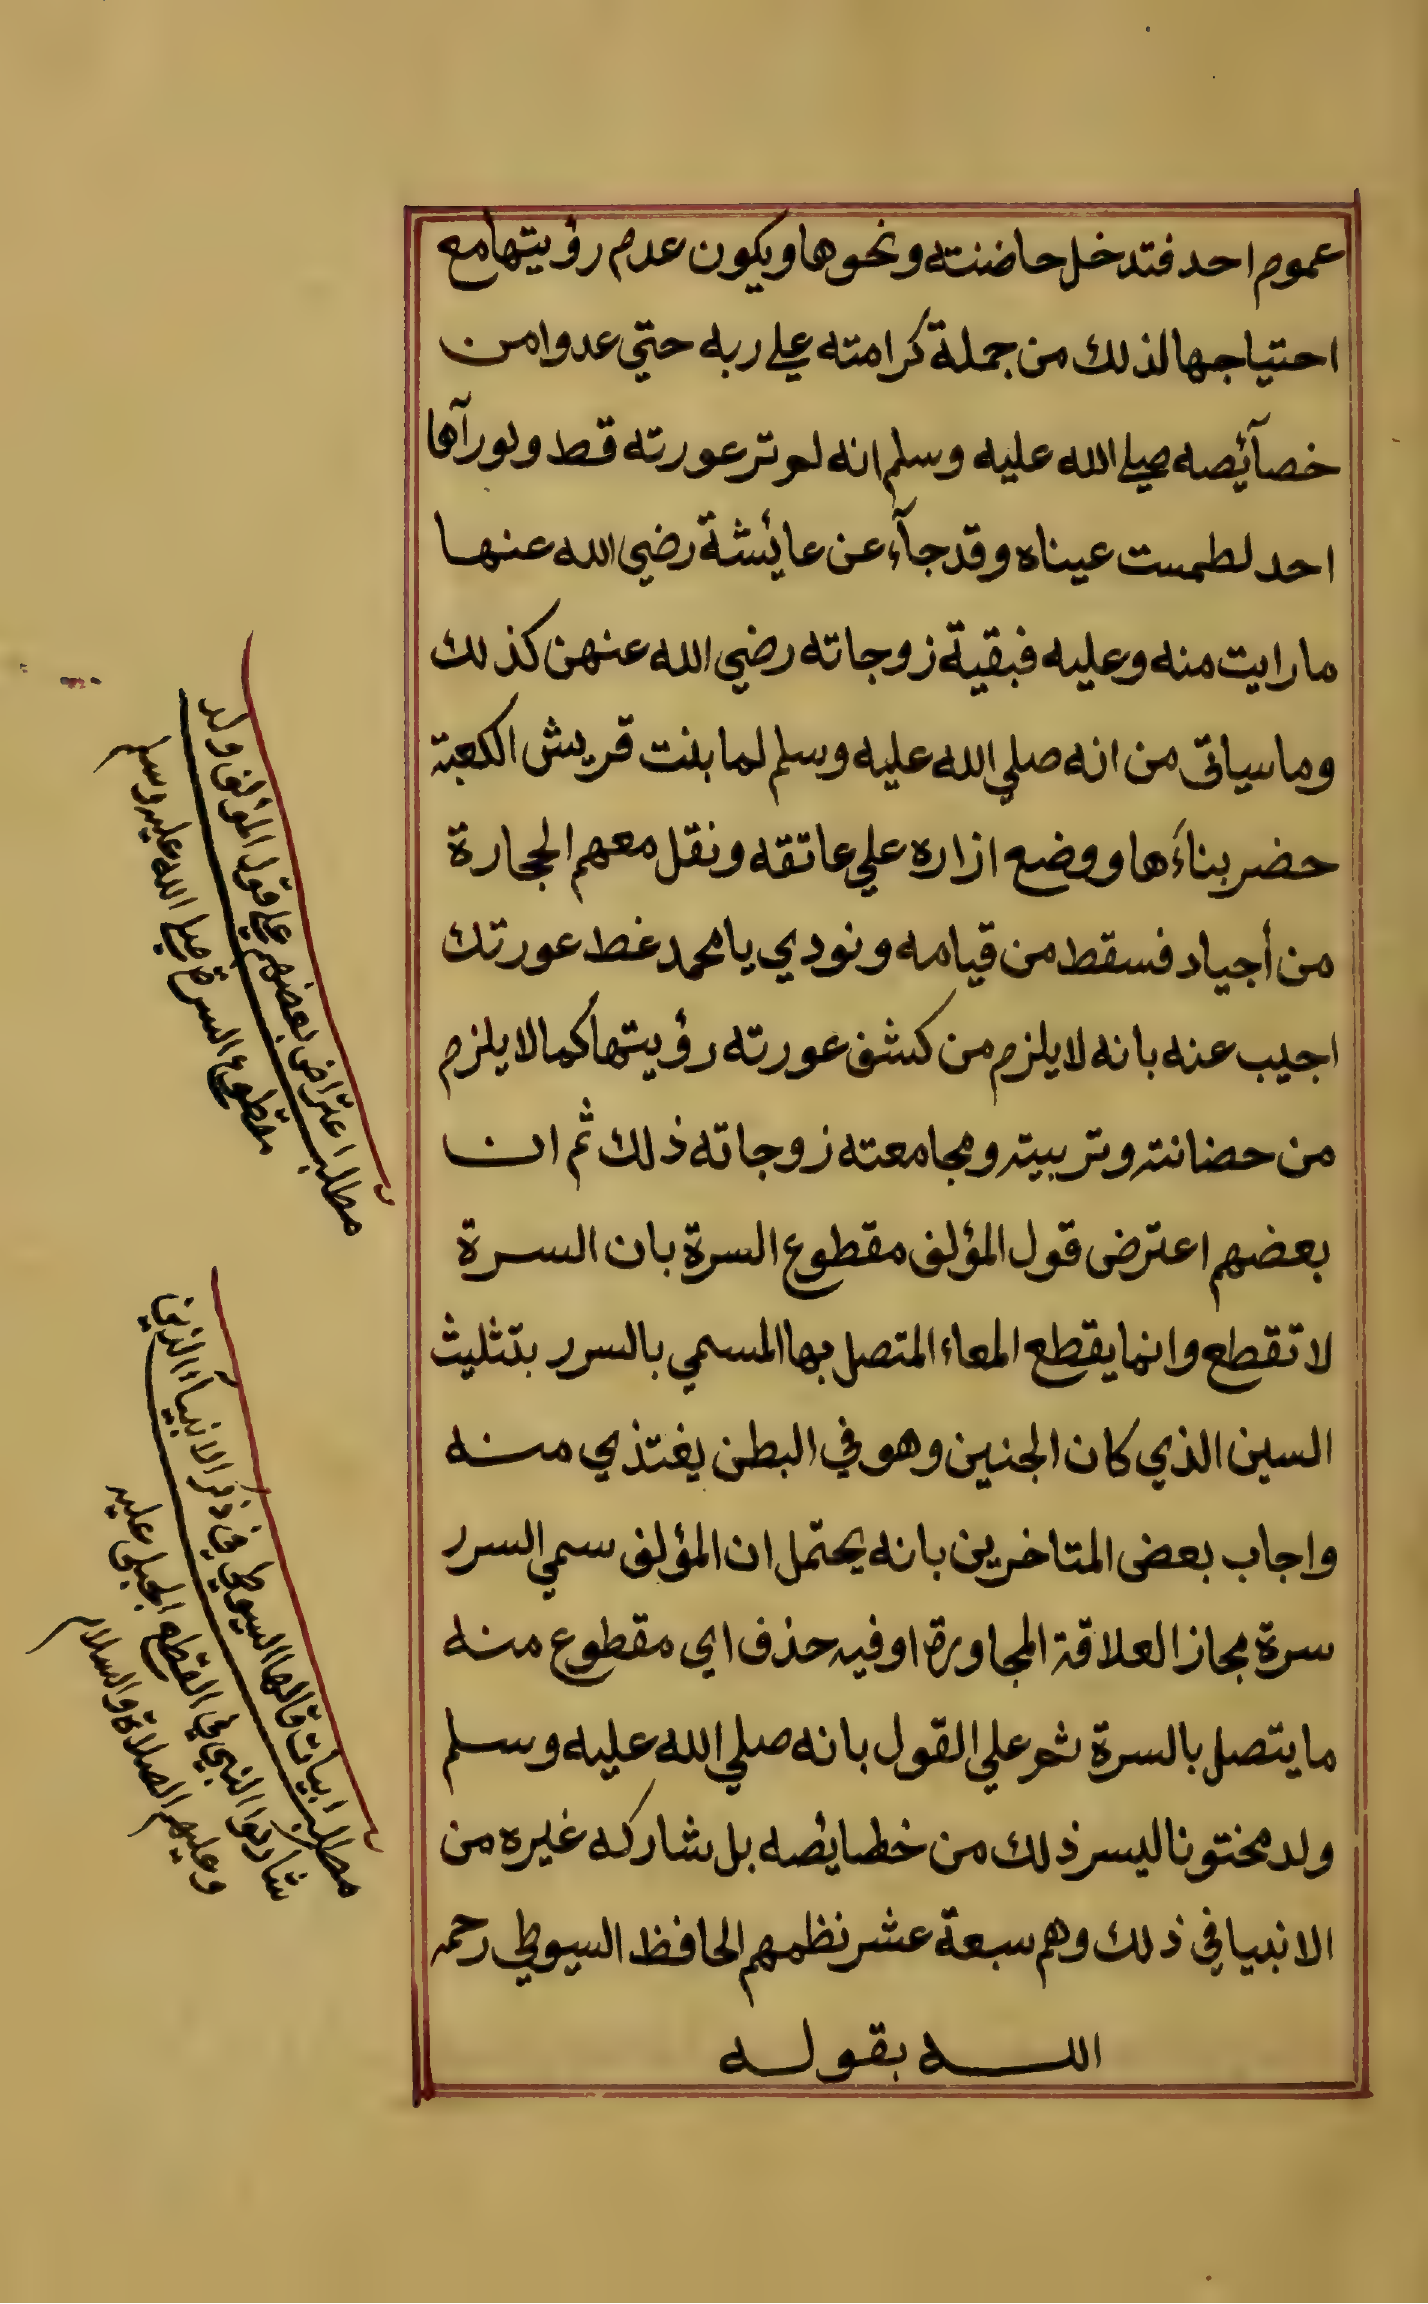 عموم احد فتدخل حاضنته ونحوها ويكون عدم رؤيتها مع
احتياجها لذلك من جملة كرامته علي ربه حتي عدوا من
خصآئصه صلي الله عليه وسلم انه لم تر عورته قط ولو رآها
احد لطمست عيناه وقد جآء عن عائشة رضي الله عنها
ما رايت منه وعليه فبقية زوجاته رضي الله عنهن كذلك
وما سياتي من انه صلي الله عليه وسلم لما بنت قريش الكعبة
حضر بناءها ووضع ازاره علي عاتقه ونقل معهم الحجارة
من أجياد فسقط من قيامه ونودي يا محمد غط عورتك
اجيب عنه بانه لا يلزم من كشف عورته رؤيتها كما لا يلزم
من حضانته وتربيته ومجامعته زوجاته ذلك ثم ان
بعضهم اعترض قول المؤلف مقطوع السرة بان السرة
لا تقطع وانما يقطع المعاء المتصل بها المسمي بالسرر بتثليث
السين الذي كان الجنين وهو في البطن يغتذي منه
واجاب بعض المتاخرين بانه يحتمل ان المؤلف سمي السرر
سرة مجازا لعلاقة المجاورة او فيه حذف اي مقطوع منه
ما يتصل بالسرة ثم علي القول بانه صلي الله عليه وسلم
ولد مختونا ليس ذلك من خطايصه بل شاركه غيره من
الانبيا في ذلك وهم سبعة عشر نظمهم الحافظ السيوطي رحمه
الله بقوله
مطلب اعتراض بعضهم علي قول المؤلف ولد
مقطوع السرة صلي الله عليه وسلم
مطلب ابيات قالها السيوطي في ذكر الانبيآء الذين
شاركوا النبي في القطع الجبلي عليه
وعليهم الصلاة والسلام